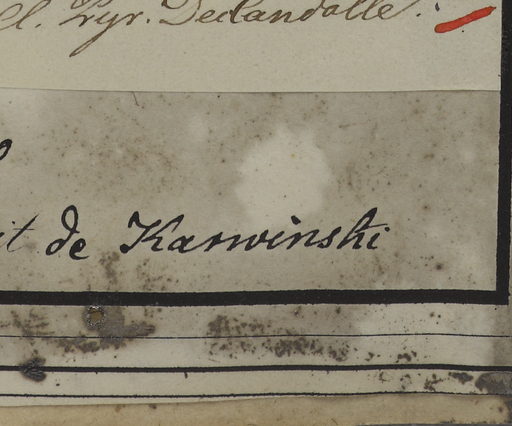 el. Pyr. Declandolle.
it de Karwinski